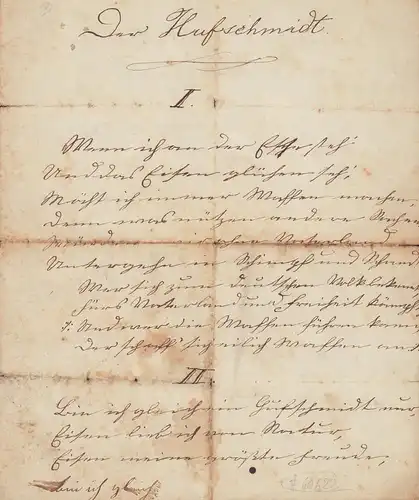 Der Hufschmidt.
II.
Wenn ich an der Esse steh'
Und das Eisen glühen seh',
Möcht ich immer Waffen machen,
Denn was nützen andere Sachen
Vaterland
Untergehn in Schimpf und Schand
Wer sich zum deutschen Volk bekennt
Fürs Vaterland und Freiheit kämpft
Und wer die Waffen führen kann
Der schaff' sich eilich Waffen an
III.
Bin ich gleich ein Hufschmidt nur,
Eisen lieb ich von Natur,
Eisen meine größte Freude,
bin ich gleich